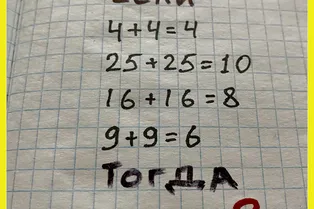 ЕСЛИ
4+4=4
25+25=10
16+16=8
9+9=6
ТогДА
?